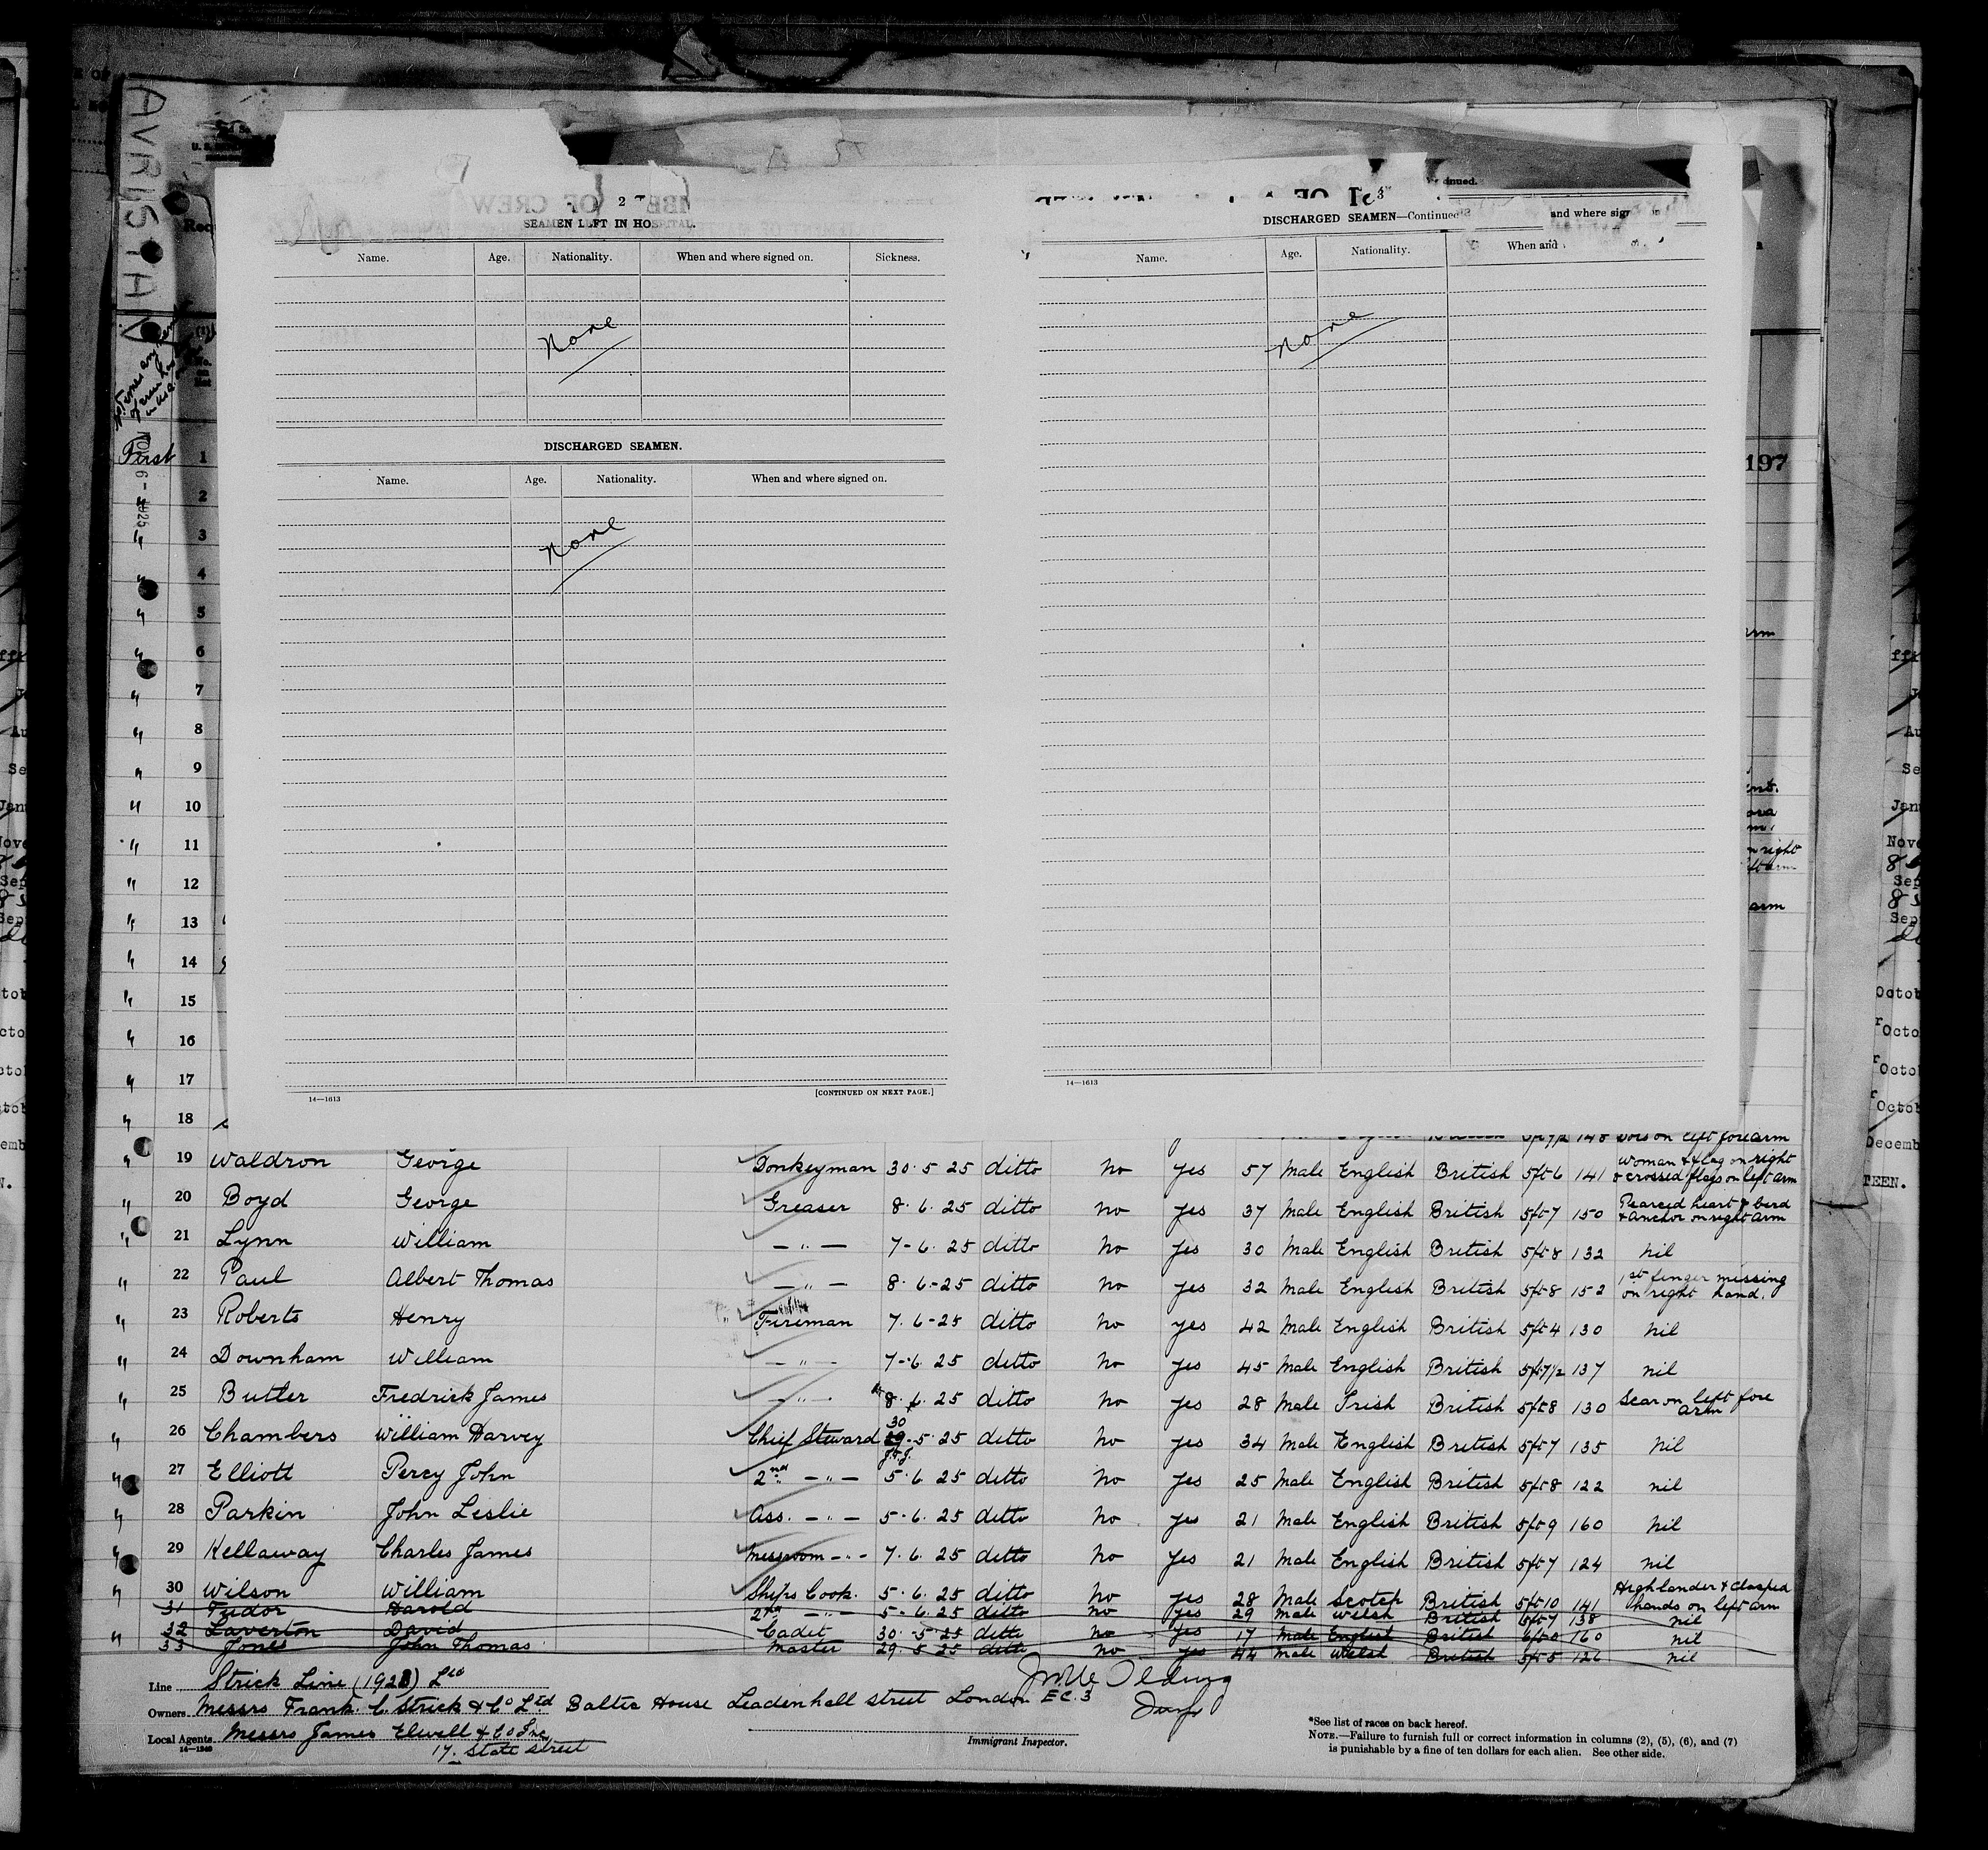 AVRISTAN
2
SEAMEN LEFT IN HOSPITAL.
Name. Age. Nationality. When and where signed on. Sickness.
None
DISCHARGED SEAMEN.
Name. Age. Nationality. When and where signed on.
None
14—1613 [CONTINUED ON NEXT PAGE.]
3
DISCHARGED SEAMEN—Continued
and where sig
Name. Age. Nationality. When and
None
14—1613
197
First 1
" 2
" 3
" 4
" 5
" 6
" 7
" 8
" 9
" 10
" 11
" 12
" 13
" 14
" 15
" 16
" 17
" 18
148 left forearm
" 19 Waldron George Donkeyman 30.5 25 ditto No Yes 57 Male English British 5ft 6 141 Woman & flag on right & crossed flags on left arm
" 20 Boyd George Greaser 8.6.25 ditto No Yes 37 Male English British 5ft 7 150 Pearced heart & berd & anchor on right arm
" 21 Lynn William — " — 7-6.25 ditto No Yes 30 Male English British 5ft 8 132 nil
" 22 Paul Albert Thomas — " — 8.6-25 ditto No Yes 32 Male English British 5ft 8 152 1st finger missing on right hand.
" 23 Roberts Henry Fireman 7.6-25 ditto No Yes 42 Male English British 5ft 4 130 nil
" 24 Downham William — " — 7-6.25 ditto No Yes 45 Male English British 5ft 7½ 137 nil
" 25 Butler Fredrick James — " — 8.6.25 ditto No Yes 28 Male Irish British 5ft 8 130 Scar on left fore arm
" 26 Chambers William Harvey Chief Steward 30 29-5.25 ditto No Yes 34 Male English British 5ft 7 135 Nil
" 27 Elliott Percy John 2nd — " — 5.6.25 ditto No Yes 25 Male English British 5ft 8 122 nil
" 28 Parkin John Leslie Ass. — " — 5.6.25 ditto No Yes 21 Male English British 5ft 9 160 Nil
" 29 Kellaway Charles James Messroom — " — 7.6.25 ditto No Yes 21 Male English British 5ft 7 124 nil
" 30 Wilson William Ships Cook. 5.6.25 ditto No Yes 28 Male Scotch British 5ft 10 141 Highlander & Clasped hands on left arm
31 Tudor Harold 2nd — " — 5-6.25 ditto No Yes 29 Male Welsh British 5ft 7 138 nil
" 32 Laverton David Cadet 30.5.25 ditto No Yes 17 Male English British 6ft 0 160 nil
33 Jones John Thomas Master 29.5.25 ditto No Yes 44 Male Welsh British 5ft 5 126 nil
Line Strick Line (1923) Ltd
Owners Messrs Frank. C. Strick & Co Ltd Baltic House Leadenhall street London EC.3
Local Agents Messrs James Elwell & Co Inc
17. State Street
Immigrant Inspector.
*See list of races on back hereof.
NOTE.—Failure to furnish full or correct information in columns (2), (5), (6), and (7)
is punishable by a fine of ten dollars for each alien. See other side.